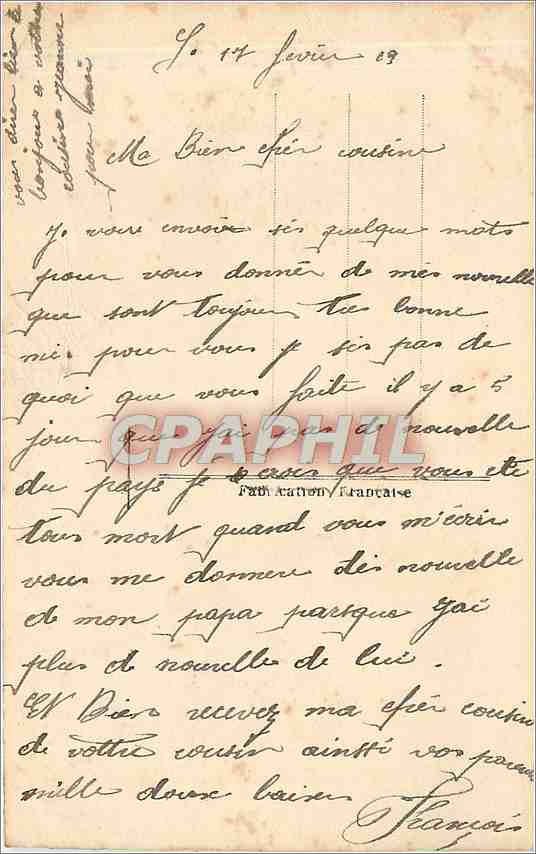 17 février 19
Ma Bien chér cousine
J. vous envoie sés quelque mots
pour vous donnér de més nouvelle
que sont toujour tres bonne
mé. pour vous je sés pas de
quoi que vous faite il y a 5
jour que j'ai pas de nouvelle
du pays je crois que vous ete
CPAPHIL
Fabrication Française
tous mort quand vous m'écrir
vous me donnere dés nouvelle
de mon papa parsque j'ai
plus de nouvelle de lui.
Et Bien recevez ma chér cousin
de vottre cousin ainssi vos parents
mille doux baiser
François
vous direr bien le
bonjour a votre
cousine
pour moi